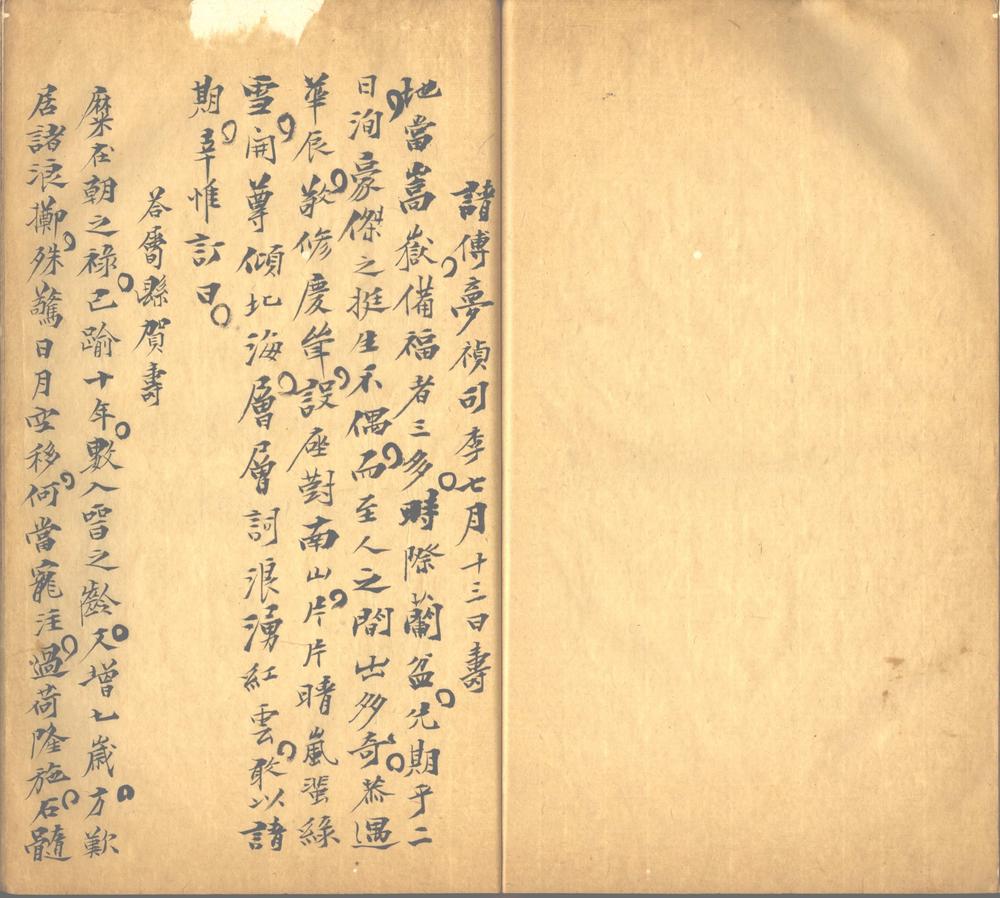 請傅夢禎司李七月十三日壽
地當嵩嶽備福者三多時際蘭盆先期乎二
日洵豪傑之挺生不偶而至人之間出多奇恭遇
華辰敬修慶筵設座對南山片片晴嵐蜚綠
雪開尊傾北海層層詞浪湧紅雲敢以請
期幸惟訂日
答屬縣賀壽
糜在朝之祿已踰十年數入署之齡又增七歲方歎
居諸浪擲殊驚日月空移何當寵注過荷隆施石髓